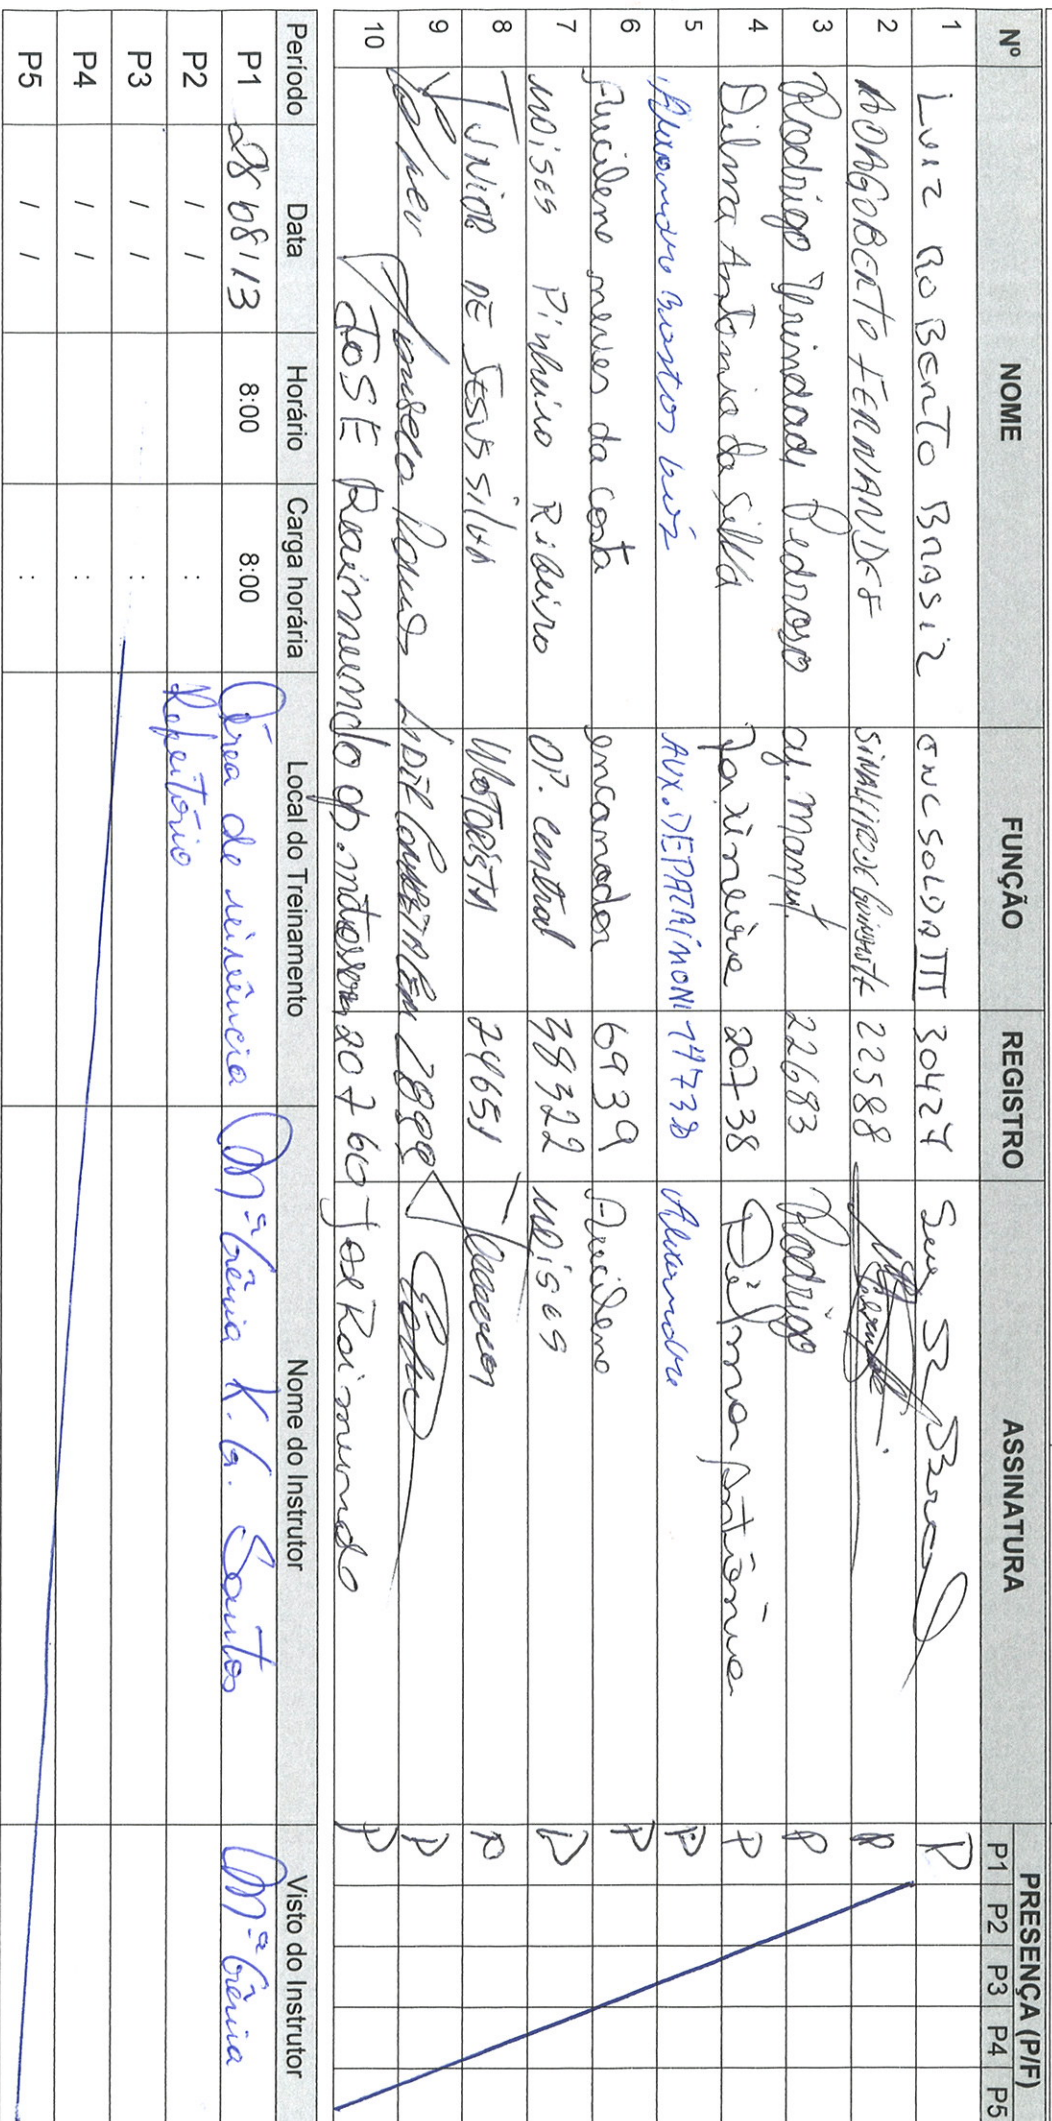 Nº NOME FUNÇÃO REGISTRO ASSINATURA PRESENÇA (P/F)
P1 P2 P3 P4 P5
1 Luiz RoBerto BrasiL enc SoLDA III 30424 P
2 ADAGOBERTO FERNANDES SINALEIRO DE Guindaste 22588 P
3 Rodrigo Trindade Pedroso aj. Manut. 22683 Rodrigo P
4 Dilma Antonia da Silva Faxineira 20738 Dilma Antônia P
5 Alexandre Bastos Luiz AUX. DE PATRIMONI Alexandre P
6 Lucilene neves da costa encanador 6939 Lucilene P
7 Moises Pinheiro Ribeiro OP. Central 38322 Moises P
8 JUNIOR DE JESUS SILVA MOTORISTA 24651 P
9 P
10 JOSE Raimundo op. 20760 José Raimundo P
Período Data Horário Carga horária Local do Treinamento Nome do Instrutor Visto do Instrutor
P1 28/08/13 8:00 8:00 Área de vivência Mª Gênia K. G. Santos Mª Gênia
P2 / / : Refeitório
P3 / / :
P4 / / :
P5 / / :